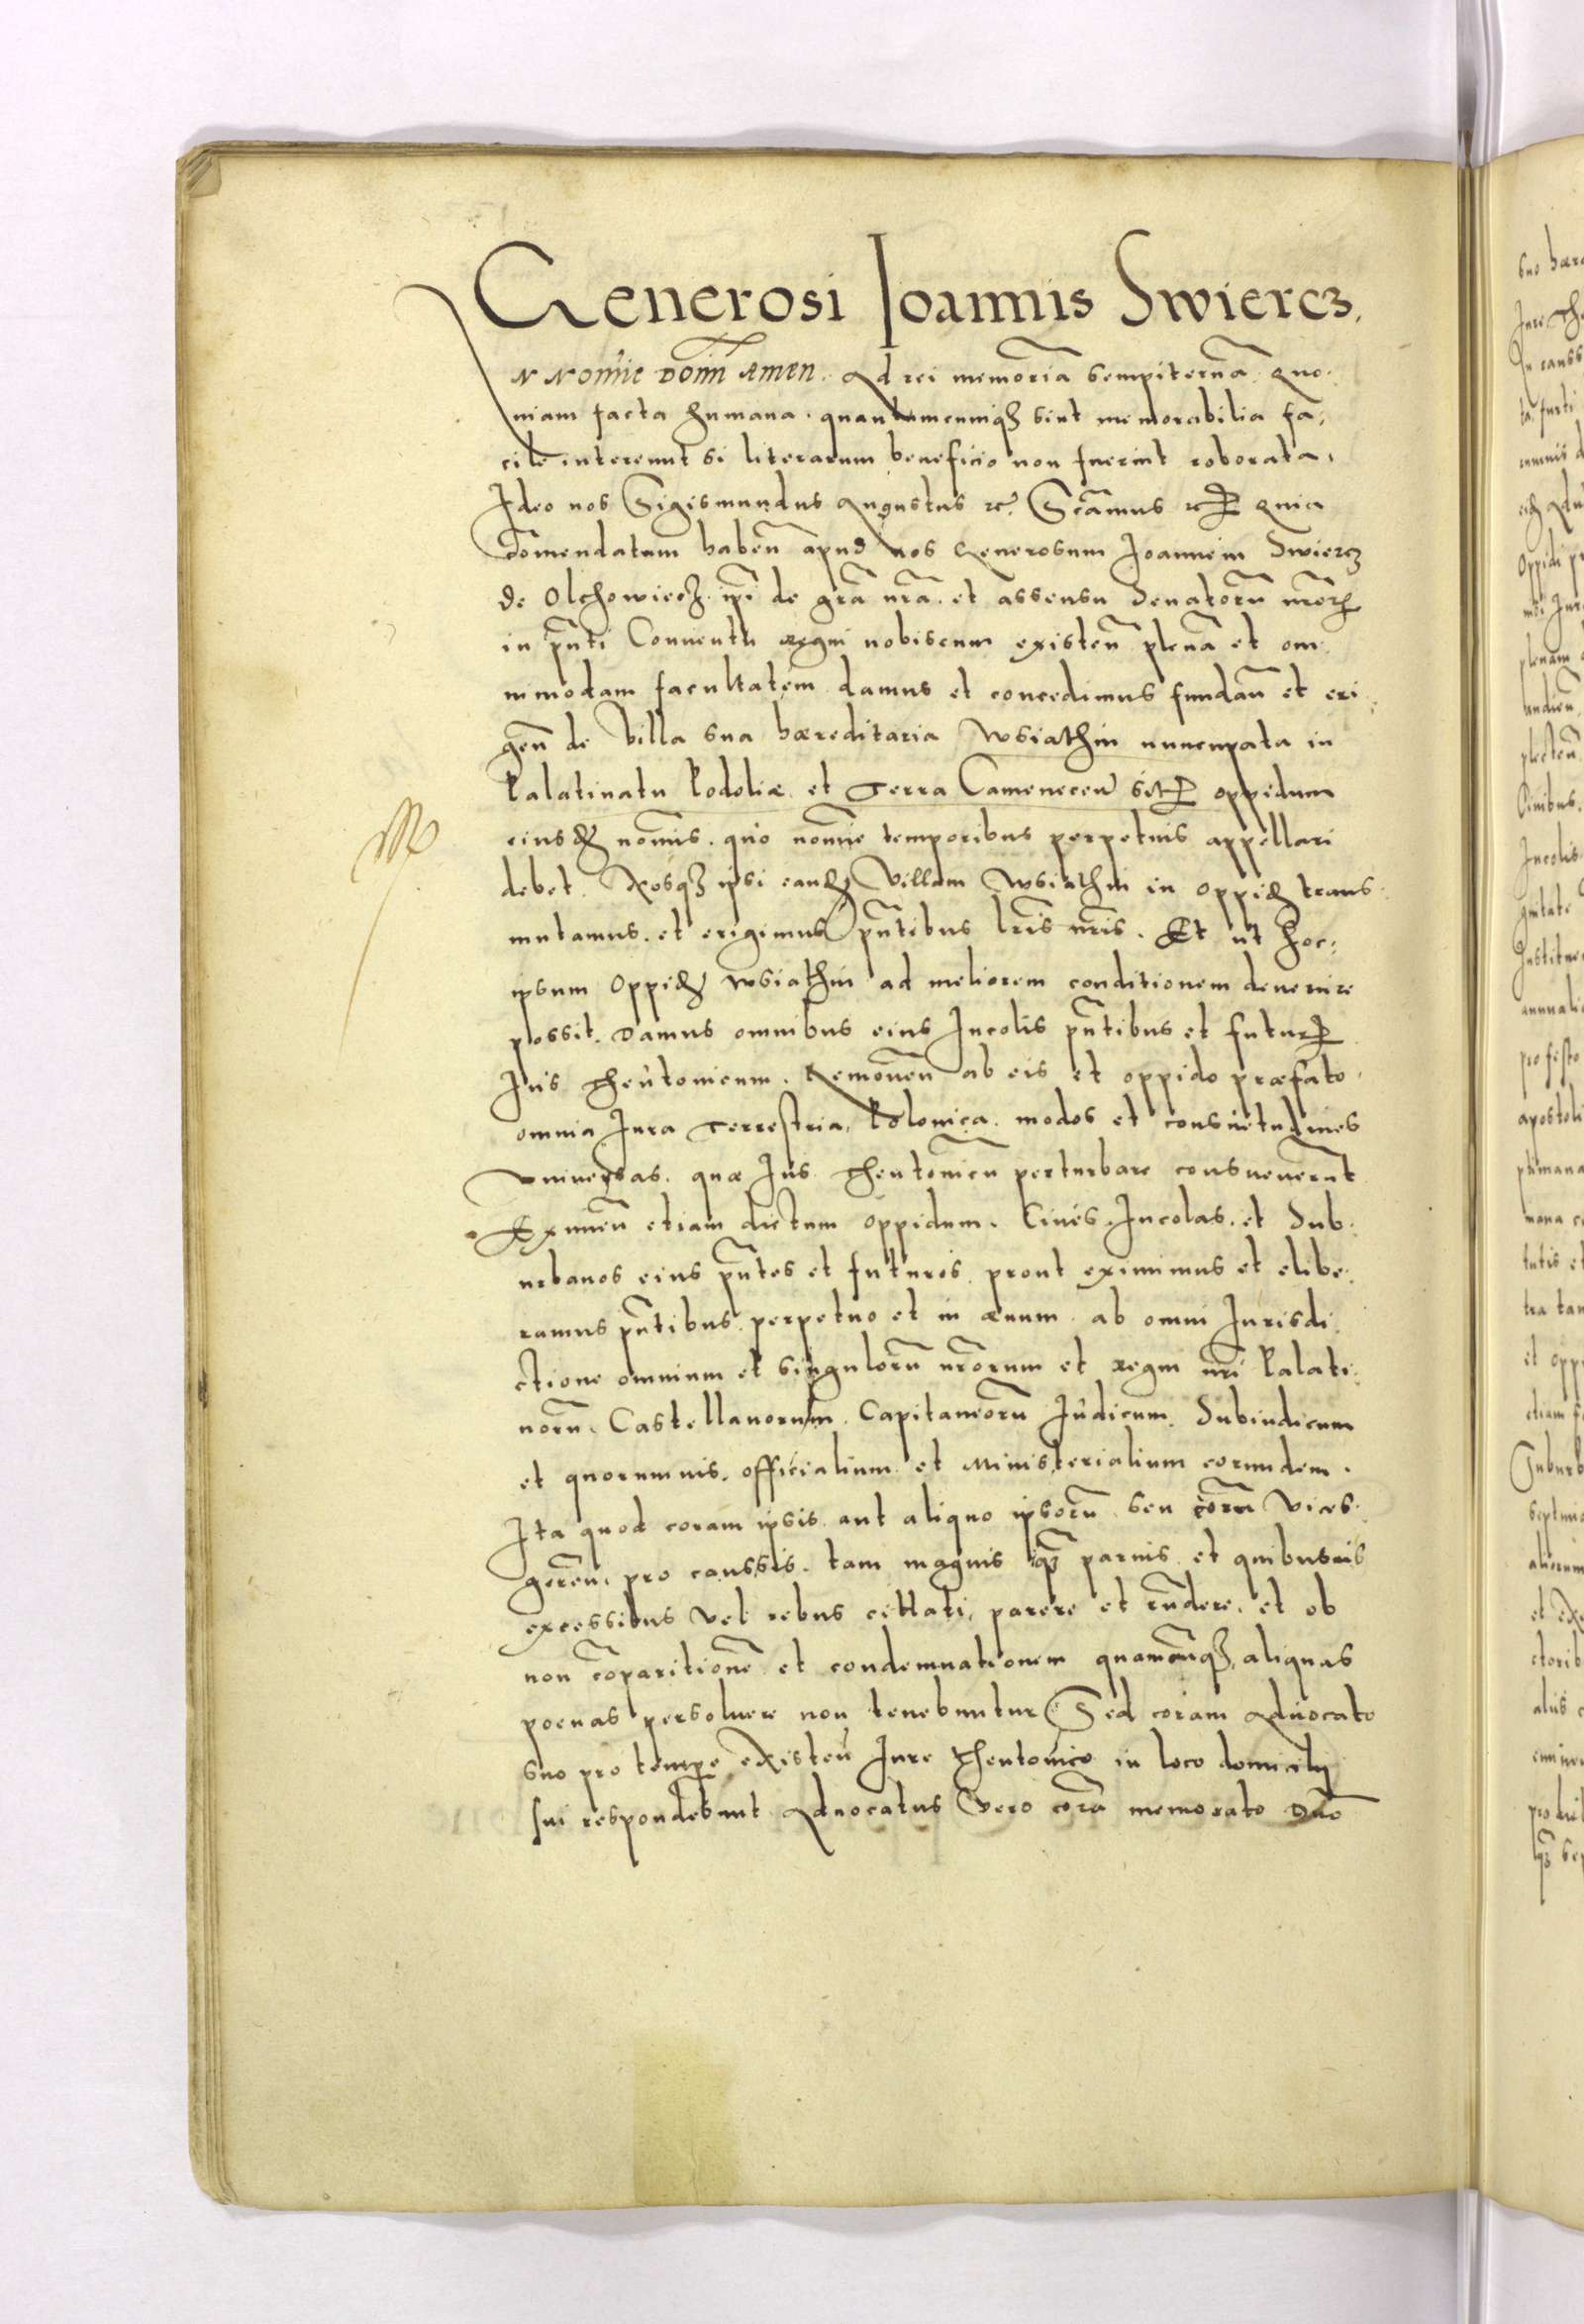 Generosi Ioannis Swiercz.
IN Nomīe Domī Amen. Ad rei memoriā sempiternā. Quo-
niam facta humana. quantumcunq₃ sint memorabilia fa-
cile intereunt si literarum beneficio non fuerint roborata.
Ideo nos Sigismundus Augustus etc. Significamus etc. Quia
Comendatum haben̄ apud nos Generosum Ioannem Swiercz
de Olchowiecz. ip̄i de gr̄a nr̄a. et assensu Senatorū nr̄or
in pn̄ti Conuentu Regni nobiscum existen̄ plenā et om-
nimodam facultatem damus et concedimus fundan̄ et eri-
gen̄ de Villa sua haereditaria Wsiathin nuncupata in
Palatinatu Podoliae et Terra Camenecen̄ oppidum
eiusd nominis. quo nomīe temporibus perpetuis appellari
debet. Nosq₃ ipsi eand Villam Wsiathin in Oppid trans-
mutamus. et erigimus pn̄tibus lr̄is nr̄is. Et ut hoc-
ipsum Oppid Wsiathin ad meliorem conditionem deuenire
possit. Damus omnibus eius Incolis pn̄tibus et futur
Ius Theutonicum. Remouen̄ ab eis et oppido praefato
omnia Iura Terrestria, Polonica. modos et consuetudines
Vniuersas. quae Ius Theutonicū perturbare consueuerūt
Eximen̄ etiam dictum oppidum. Ciues. Incolas. et Sub-
urbanos eius pn̄tes et futuros. prout eximimus et elibe-
ramus pn̄tibus perpetuo et in aeuum. ab omni Iurisdi-
ctione omnium et singulorū nr̄orum et Regni nr̄i Palati-
norū. Castellanorum. Capitaneorū Iudicum. Subiudicum
et quorumuis. officialium et Ministerialium eorundem.
Ita quod coram ipsis aut aliquo ipsorū seu eorū Vices-
geren̄. pro caussis. tam magnis q̄₃ paruis et quibusuis
excessibus Vel rebus cittati, parere et rn̄dere. et ob
non cōparitionē et condemnationem quamcūq₃, aliquas
poenas persoluere non tenebuntur Sed coram Aduocato
suo pro tempe existen̄ Iure theutonico in loco domicilij
sui respondebunt Aduocatus Vero corā memorato Dn̄o